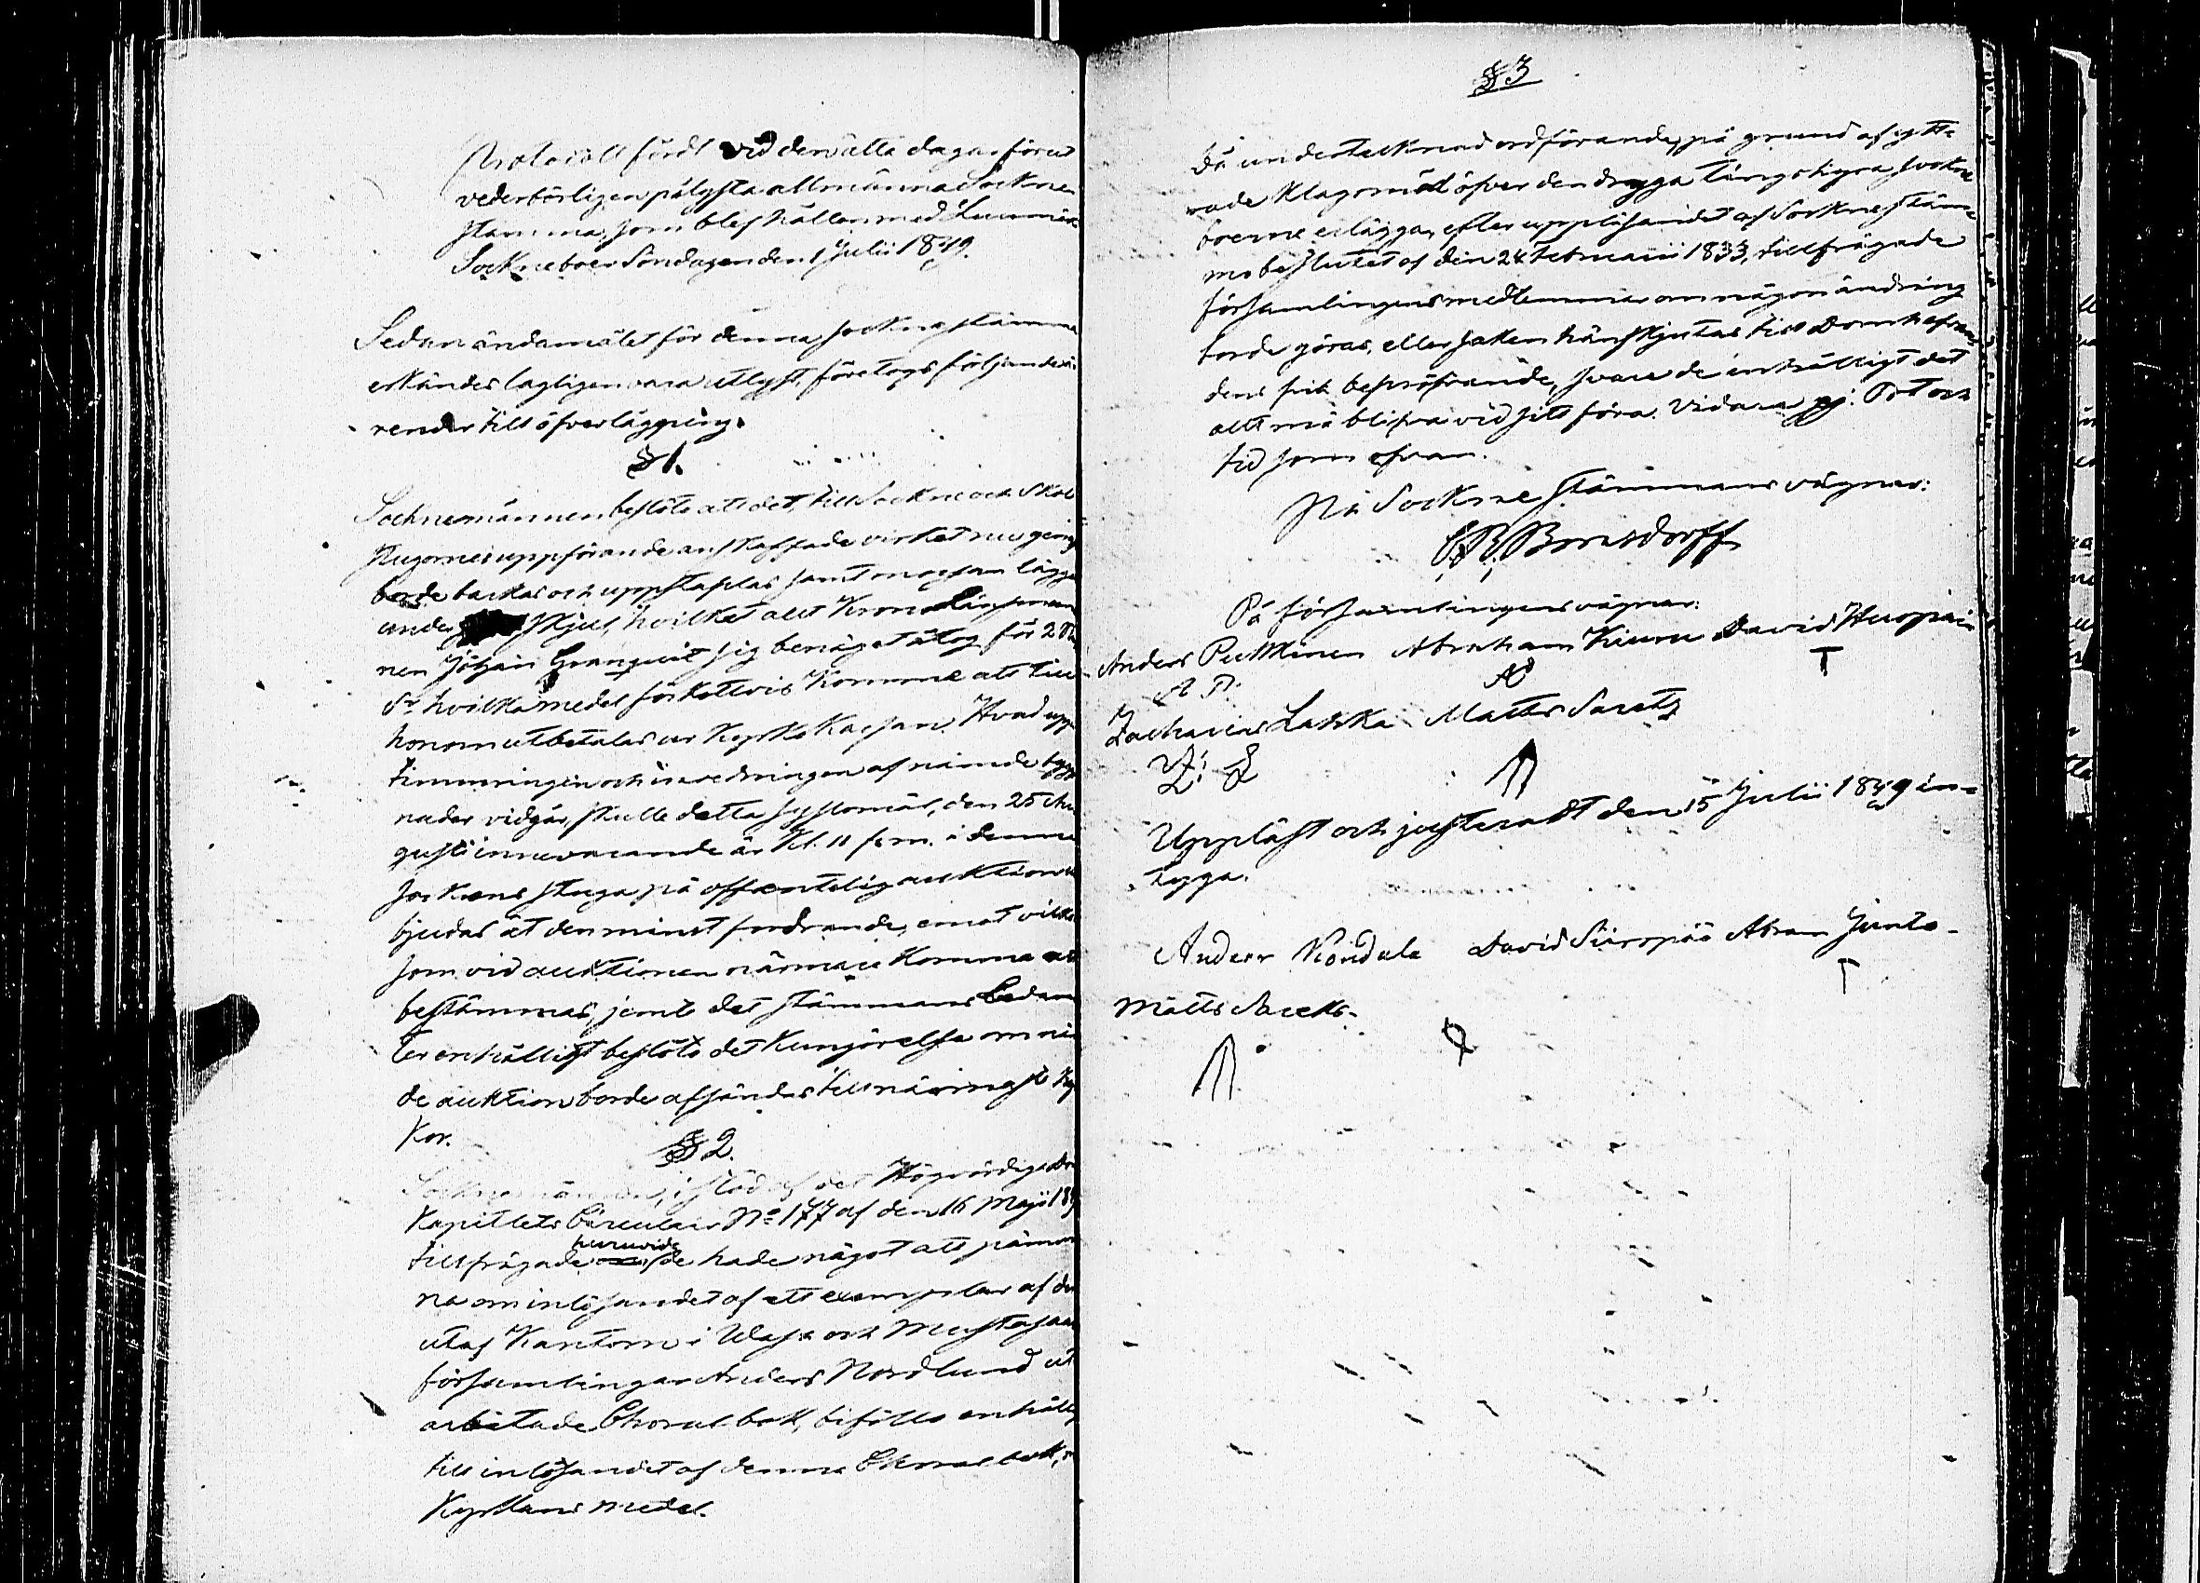 Protocoll fördt vid den åtta dagar förut
vederbörligen pålysta allmänna Sockne
stämma, som blef hållen med
Sockneboer Söndagen den 1 Julii 1849.
Sedan ändamålet för denna sockne stämma
erkändes lagligen vara utlyst, företogs följande ä-
render till öfverläggning.
§ 1.
Sochnemännen beslöto att det, till Sockne och Skol
stugornes uppförande anskaffade virket nu genig
borde barkas och uppstaplas samt noggran läggas
under skjul, hvilket allt Krono Länsman
nen Johan Granqvist sig benäget åtog för 2
Sr hvilka medel förskottvis komme att till
honom utbetalas ur Kyrko Kassan. Hvad upp
timmringen och inredningen af nämnde bygg
nader vidgår, skulle detta sysslomål, den 25 Au
gusti innevarande år Kl. 11 f.m. i denna
sockens stuga på offentelig auktion ut
bjudas åt den minst fordrande, emot vilkor
som vid auktionen närmare komma att
bestämmas, jemte det stämmans Ledam
ter enhälligt beslöto det kungörelse om näm
de auktion borde afsändas till närmaste Kyr
kor.
§ 2.
Sochnemännen, i stöd af det Högvördiga Dom
Kapitlets Circulair No 177 af den 16 Maji 18
tillfrågade huruvida de hade något att påmin
na om inlösandet af ett exemplar af den
utaf Kantorn i Wasa och Mustasaari
församlingar Anders Nordlund ut
arbetade Choralbok, biföllo enhällig
till inlösandet af denna Choralbok,
Kyrkans medel.
§ 3
Då undertecknad ordförande, på grund af ytt-
rade klagomål öfver den dryga sockne
boerne erlägga, efter uppläsandet af Sockne stäm-
mo beslutet af den 24 Februarii 1833, tillfrågade
församlingens medlemmar om någon ändring
borde göras, eller saken hänskjutas till Domhafvan
dens pröfvande, svara de enhälligt det
allt må blifva vid sitt förra. Vidare ej. Ort och
tid som ofvan.
På Sockne stämmans vägnar:
C. B. Bonsdorff
På församlingens vägnar:
Anders Pukkinen Abraham Kiuru David
A P.
Zacharias Latska Matts Saretz
Z. L
Uppläst och justeradt den 15 Julii 1849 in-
tyga.
Anders David Abram Junto-
Matts